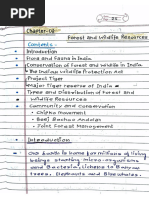 Chapter-02
Forest and Wildlife Resources
Contents:
Introduction
Flora and Fauna in India
Conservation of Forest and wildlife in India
The Indian Wildlife Protection Act
Project Tiger
Major Tiger reserve of India
Types and Distribution of Forest and
Wildlife Resources
Community and Conservation
Chipko Movement
Beej Bachao Andolan
Joint Forest Management
Introduction:
to home for millions of living
beings starting micro-organisms
and Bacteria, to Banyan
trees, Elephants and Blue whales.